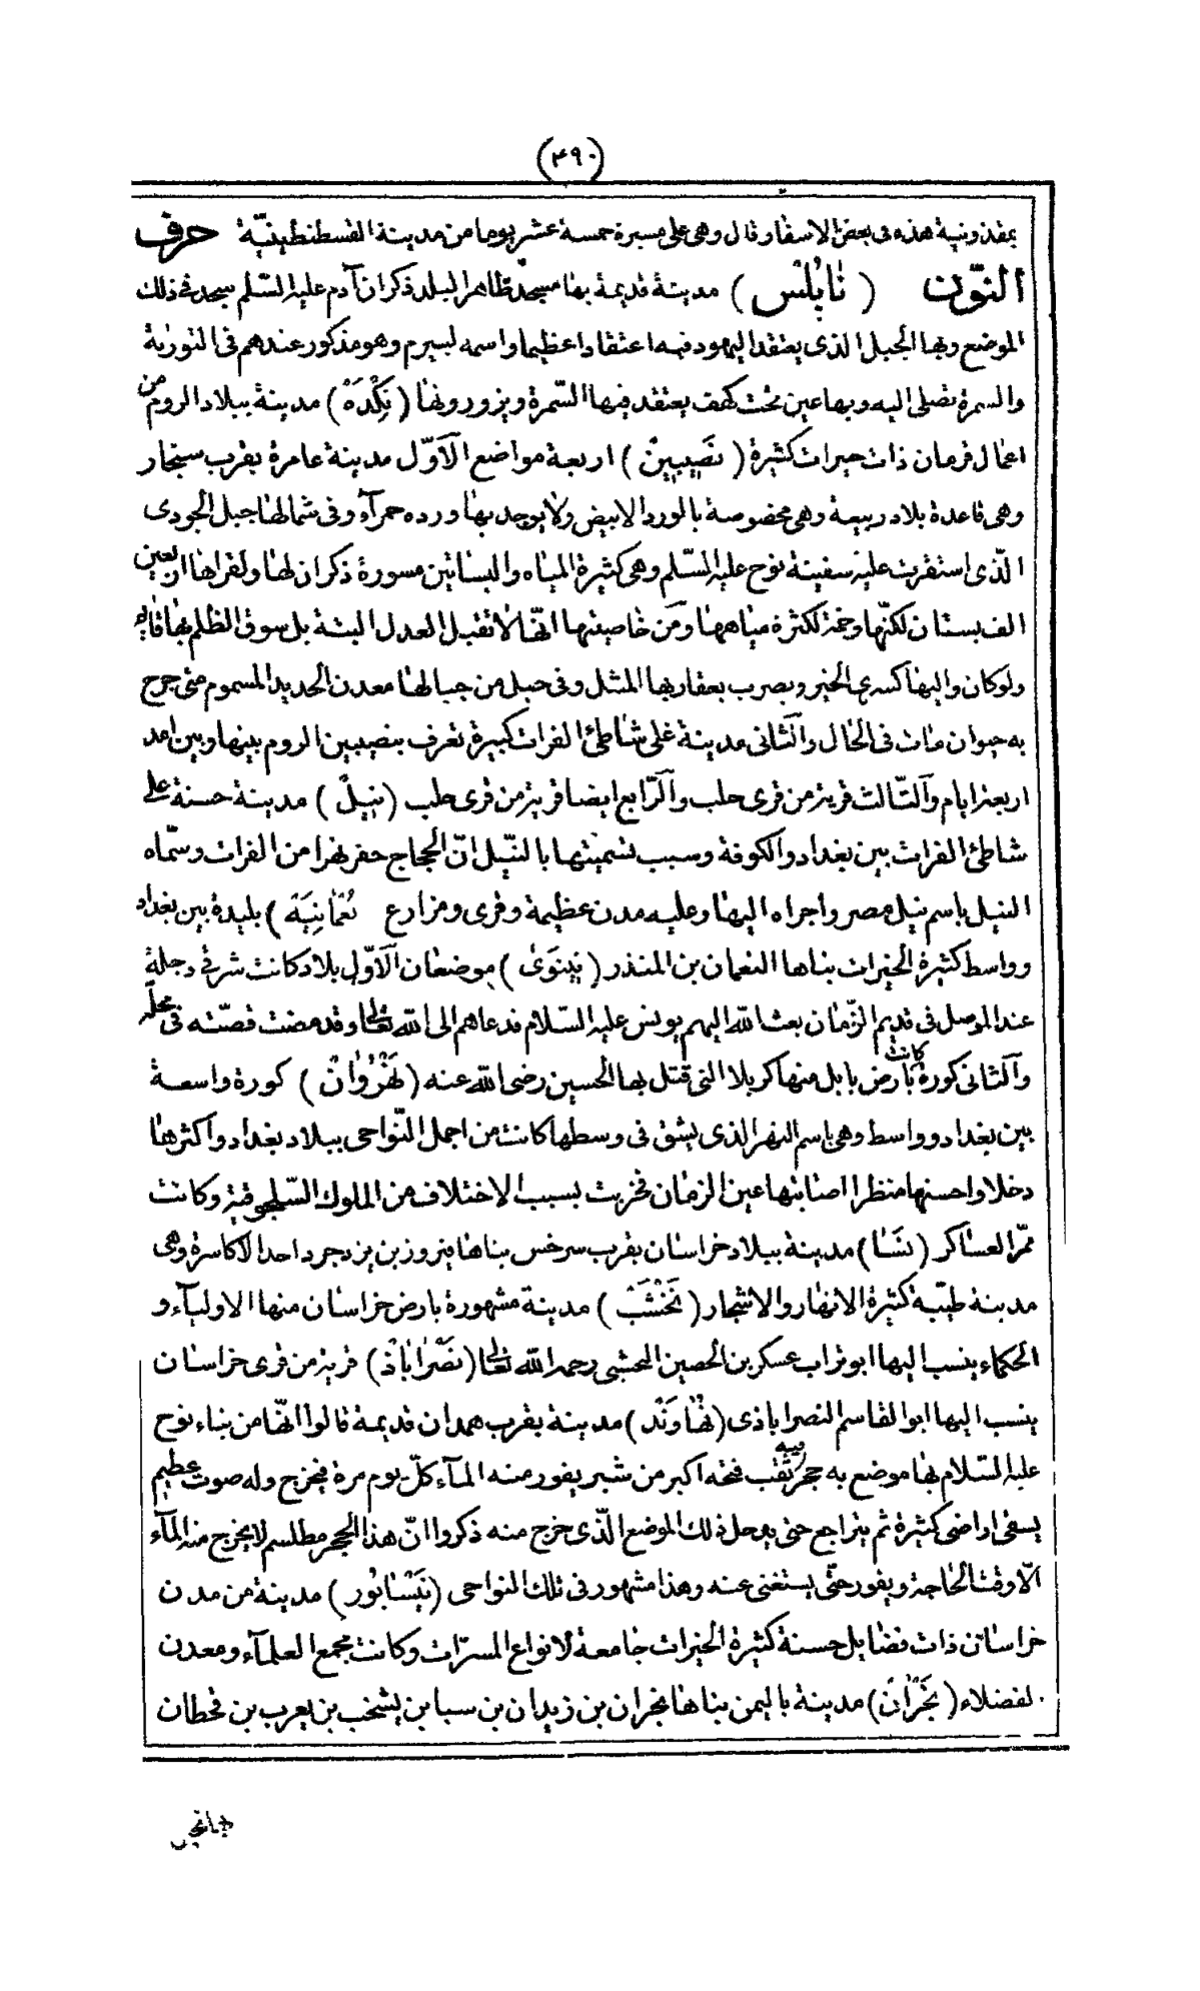 (٤٩٠)
بمقذونية هذه فى بعض الاسفار وقال وهى على مسيرة خمسة عشر يوما من مدينة القسطنطينيّة حرف
النّون ( نَابُلْس ) مدينة قديمة بها مسجد بظاهر البلد ذكر ان آدم عليه السّلم سجد فى ذلك
الموضع وبها الجبل الذى يعتقد اليهود فيه اعتقادا عظيما واسمه لسيرم وهو مذكور عندهم فى التورٰىة
والسمرة تصلى اليه وبها عين تحت كهف يعتقد فيها السّمرة ويزورونها ( نَكْدَهْ ) مدينة ببلاد الروم من
اعمال قرمان ذات خيرات كثيرة ( نَصِيبِينْ ) اربعة مواضع الاَوّل مدينة عامرة بقرب سنجار
وهى قاعدة بلاد ربيعة وهى مخصوصة بالورد الابيض ولا يوجد بها ورده حمرآء وفى شمالها جبل الجودى
الّذى استقرت عليه سفينة نوح عليه السّلم وهى كثيرة المياه والبساتين مسورة ذكر ان لها ولقراها اربعين
الف بستان لكنّها وخمة لكثرة مياهها ومن خاصيتها انّها لا تقبل العدل البتة بل سوق الظلم بها قائم
ولو كان واليها كسرى الخير ويضرب بعقاربها المثل وفى جبل من جبالها معدن الحديد المسموم متى جرح
به حيوان مات فى الحال والثانى مدينة على شاطئ الفرات كبيرة تعرف بنصيبين الروم بينها وبين امد
اربعة ايام والثّالث قرية من قرى حلب والرّابع ايضا قرية من قرى حلب ( نِيلْ ) مدينة حسنة على
شاطئ الفرات بين بغداد والكوفة وسبب تسميتها بالنّيل انّ الحجاج حفر نهرا من الفرات وسمّاه
النيل باسم نيل مصر واجراه اليها وعليه مدن عظيمة وقرى ومزارع نُعْمَانِيَة ) بليدة بين بغداد
وواسط كثيرة الخيرات بناها النعمان بن المنذر ( نِينَوَىٰ ) موضعان الاَوّل بلاد كانت شرقى دجلة
عند الموصل فى قديم الزّمان بعث الله اليهم يونس عليه السّلام فدعاهم الى الله تعالى وقد مضت قصّته فى محلّه
والثانى كورة كانت بارض بابل منها كربلا التى قتل بها الحسين رضى الله عنه ( نَهْرُوَانْ ) كورة واسعة
بين بغداد وواسط وهى باسم النهر الذى يشق فى وسطها كانت من اجمل النّواحى ببلاد بغداد واكثرها
دخلا واحسنها منظرا اصابتها عين الزمان فخربت بسبب الاختلاف من الملوك السّلجوقية وكانت
ممرّ العساكر ( نَسَا ) مدينة ببلاد خراسان بقرب سرخس بناها فيروز بن يزدجرد احد الاكاسرة وهى
مدينة طيّبة كثيرة الانهار والاشجار ( نَخْشَبْ ) مدينة مشهورة بارض خراسان منها الاوليآء و
الحكماء ينسب اليها ابو تراب عسكر بن الحصين النخشبى رحمه الله تعالى ( نَصْرَابَاذْ ) قرية من قرى خراسان
ينسب اليها ابو القاسم النصراباذى ( نَهَاوَنْد ) مدينة بقرب همدان قديمة قالوا انّها من بناء نوح
عليه السّلام بها موضع به حجر فيه ثقب فتحه اكبر من شبر يفور منه المآء كلّ يوم مرة فيخرج وله صوت عظيم
يسقى اراضى كثيرة ثم يتراجع حتى يدخل ذلك الموضع الّذى خرج منه ذكروا انّ هذا الحجر مطلسم لا يخرج منه المآء
الّا وقت الحاجة ويفور حتّى يستغنى عنه وهذا مشهور فى تلك النواحى ( نَيْسَابُور ) مدينة من مدن
خراسان ذات فضايل حسنة كثيرة الخيرات جامعة لانواع المسرّات وكانت مجمع العلمآء ومعدن
لفضلاء ( نَجْرَانْ ) مدينة باليمن بناها نجران بن زيدان بن سبا بن يشجب بن يعرب بن قحطان